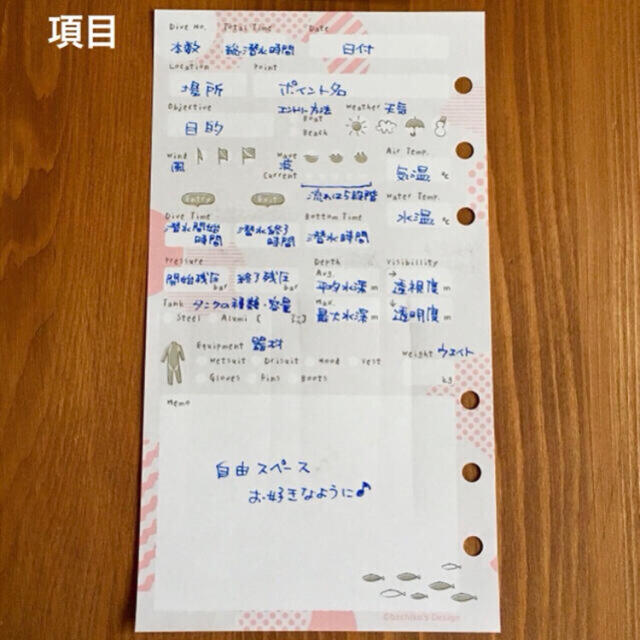 項目
Dive No. Total Time Date
本数 総潜水時間 日付
Location Point
場所 ポイント名
Objective エントリー方法 Weather 天気
目的 Boat
Beach
Wind Wave Air Temp.
風 波 気温 ℃
Current
流れは5段階
Entry Exit Water Temp.
水温 ℃
Dive Time Bottom Time
潜水開始時間 潜水終了時間 潜水時間
Pressure Depth Visibillity
開始残圧 bar 終了残圧 bar
Avg.
平均水深 m → 透視度 m
Tank タンクの種類・容量
Max.
最大水深 m ↓ 透明度 m
Steel Alumi (
Equipment 器材 Weight ウエイト
Wetsuit Drisuit Hood Vest
Gloves Fins Boots kg
Memo
自由スペース
お好きなように♪
©bachiko's Design